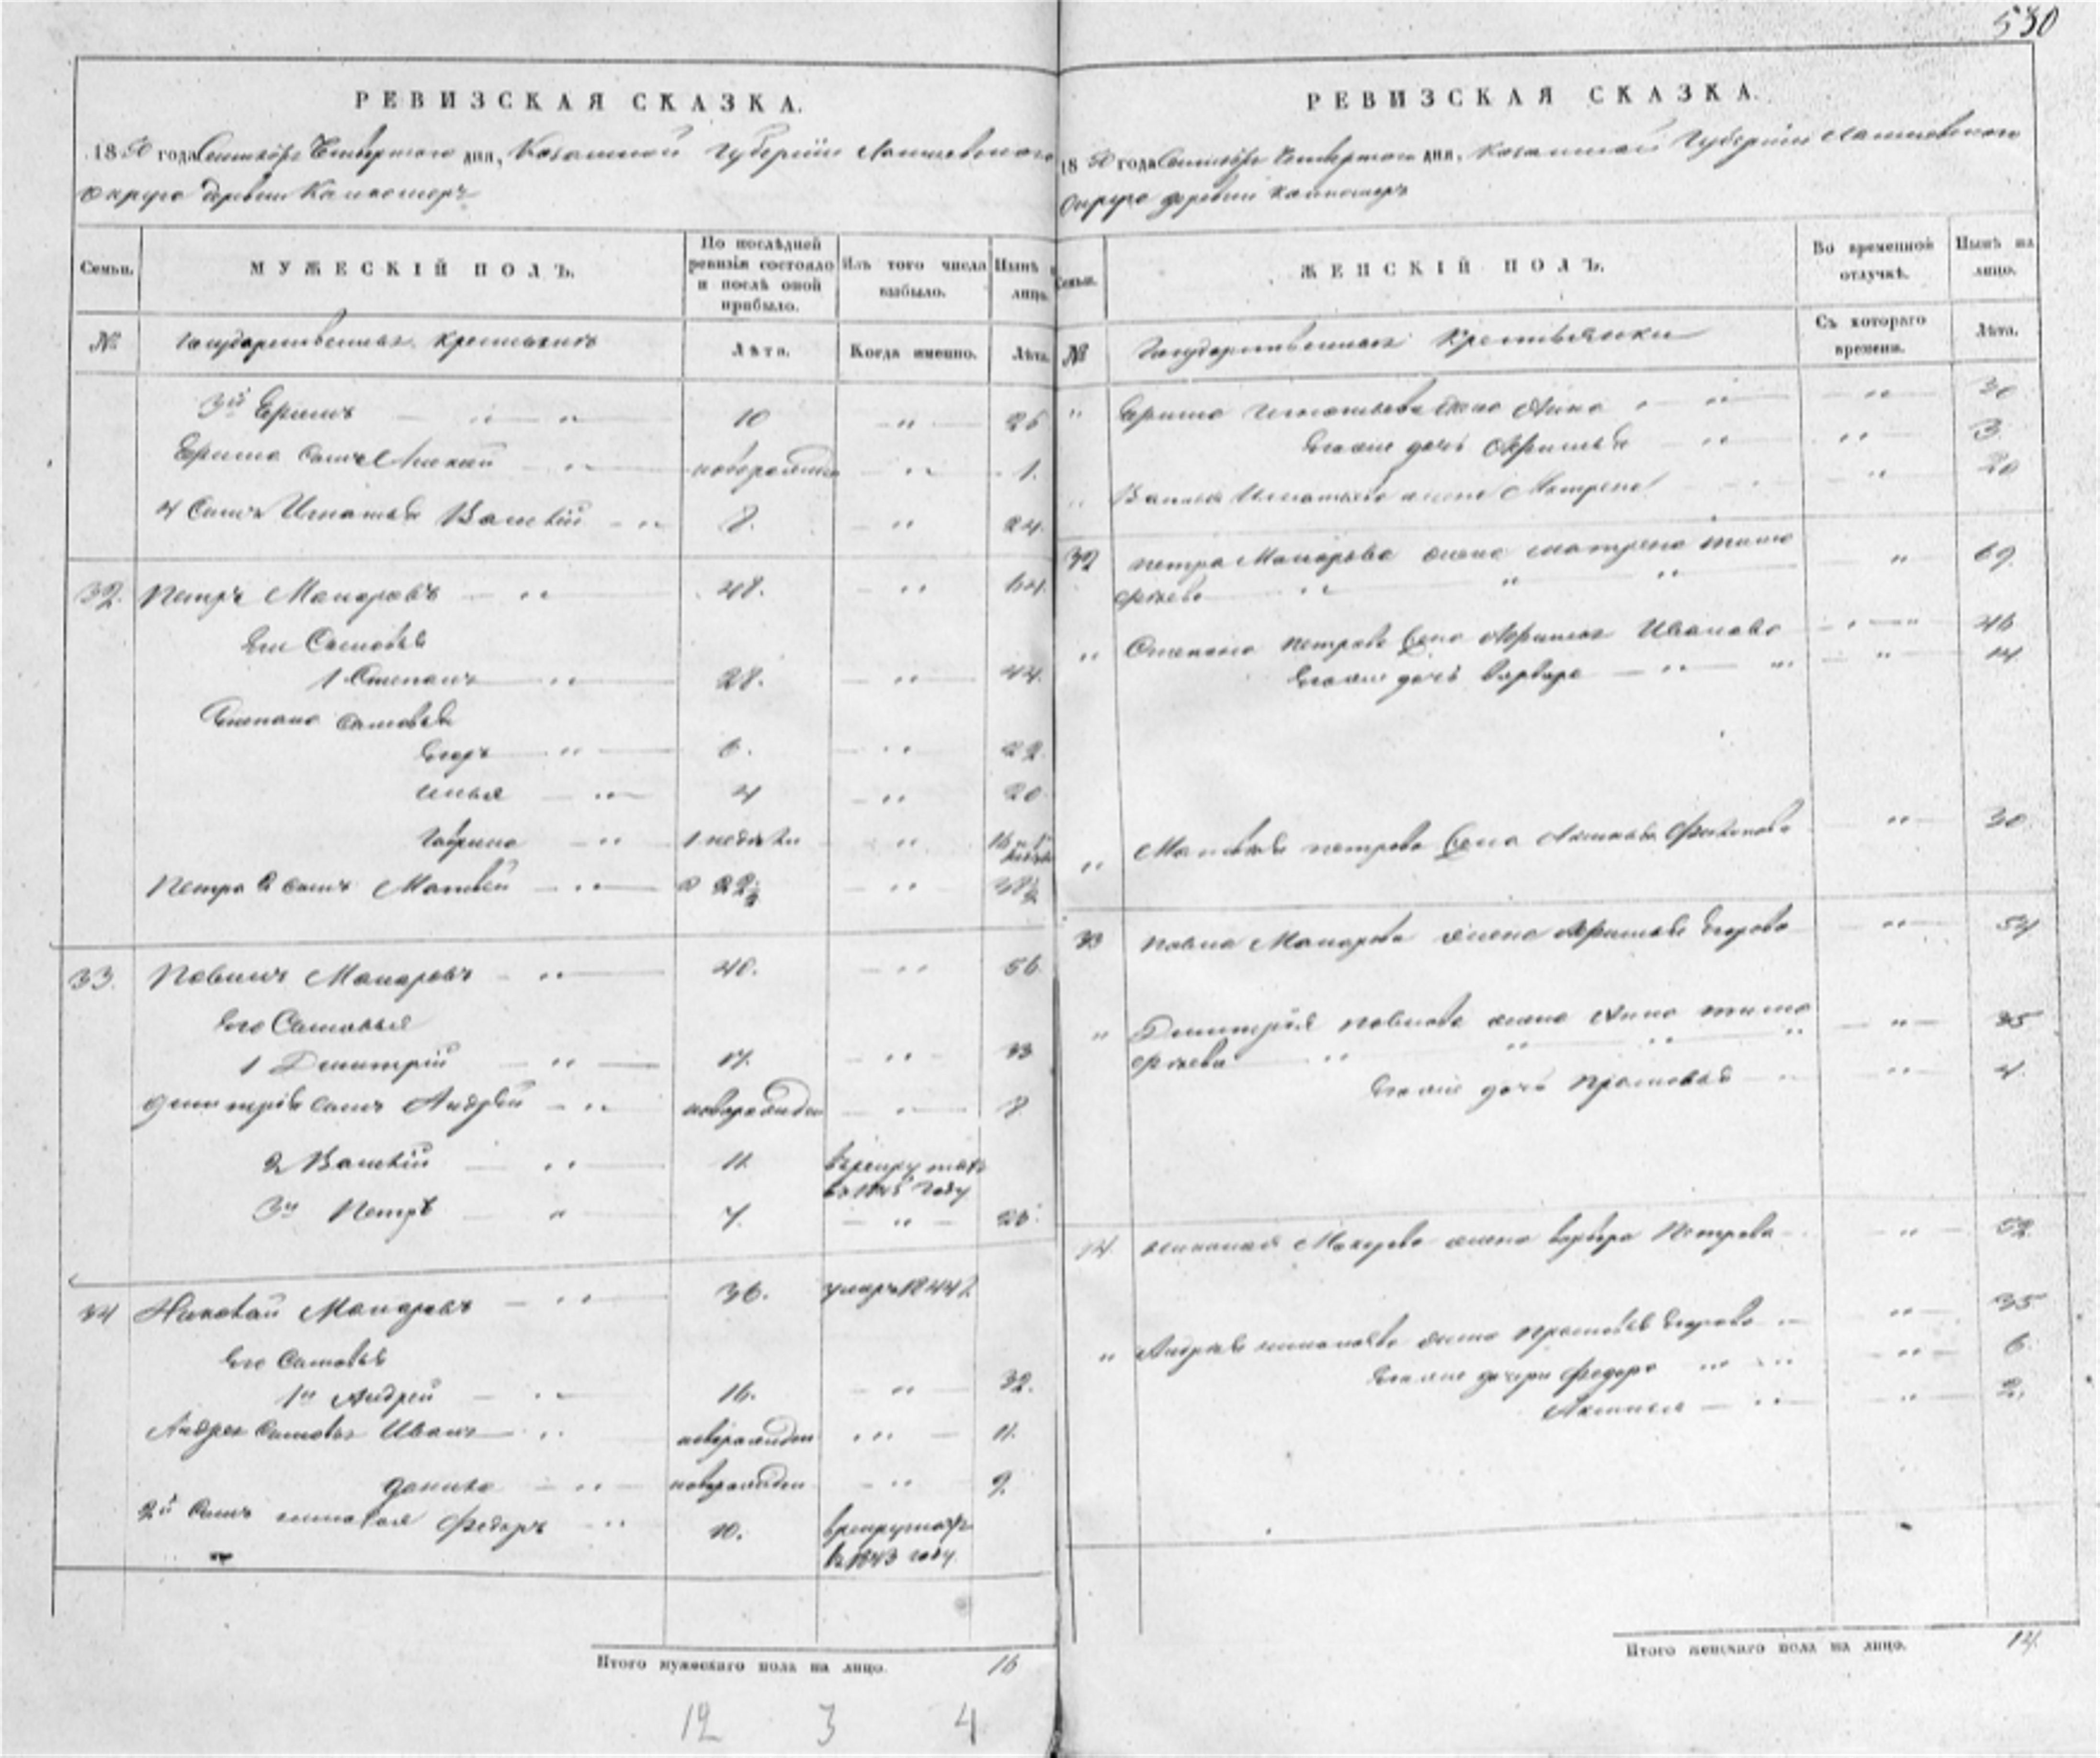 530
РЕВИЗСКАЯ СКАЗКА.
1850 года Сентября Четвертого дня, Казанской Губернии Лаишевского
Округа деревни
Семьи.
МУЖЕСКІЙ ПОЛЪ.
По послѣдней ревизіи состояло и послѣ оной прибыло.
Изъ того числа выбыло.
Нынѣ на лицо.
№
Государственныя крестьянъ
Лѣта.
Когда именно.
Лѣта.
3й Ефимъ " " 10 " 25
Ефима сынъ " новорожден " 1.
4 Сынъ Игнатья Василій " 8. " 24.
32. Петръ Макаровъ " 48. " 64.
Его Сыновья
1 Степанъ " 28. " 44.
Степана сыновья
Егоръ " 6. " 22.
Илья " 4 " 20.
Гаврила " 1 недѣли " 16 и 1
Петра 2 сынъ Матвей " 22½ " 38½
33. Павелъ Макаровъ " 40. " 56.
Его Сыновья
1 Дмитрій " 17. " 33
Дмитрія сынъ Андрей " новорожден " 8
2 Василій " 11. в рекруты
в году
3й Петръ " 7. " 23.
34 Николай Макаровъ " 36. умеръ 1844 г.
Его Сыновья
1й Андрей " 16. " 32.
Андрея сыновья Иванъ " новорожден " 11.
Данила " новорожден " 9.
2й Сынъ Николая Федоръ " 10. в рекруты
в 1843 году
Итого мужескаго пола на лицо. 16
12 3 4
РЕВИЗСКАЯ СКАЗКА.
1850 года Сентября Четвертого дня, Казанской Губерніи Лаишевского
Округа деревни
Семьи.
ЖЕНСКІЙ ПОЛЪ.
Во временной отлучкѣ.
Нынѣ на лицо.
№
Государственныя Крестьянки
Съ котораго времени.
Лѣта.
" Ефима Игнатьева жена Анна " " " 30
Ея же дочь " " 3.
" Василья Игнатьева жена Матрена " 20
32 Петра Макарова жена Матрена Тимо
фѣева " " " " 69.
" Степана Петрова жена Иванова " 46
Ея же дочь Варвара " " " 14.
" Матвѣя Петрова жена " 30.
33 Павла Макарова жена Егорова " 54
" Дмитрія Павлова жена Анна Тимо
фѣева " " " " " 35
Ея же дочь Прасковья " " 4.
34. Николая Макарова жена Варвара Петрова " 52.
" Андрея Николаева жена Прасковья Егорова " 35
Ея же дочери Федора " " " 6.
" " 2.
Итого женскаго пола на лицо. 14.